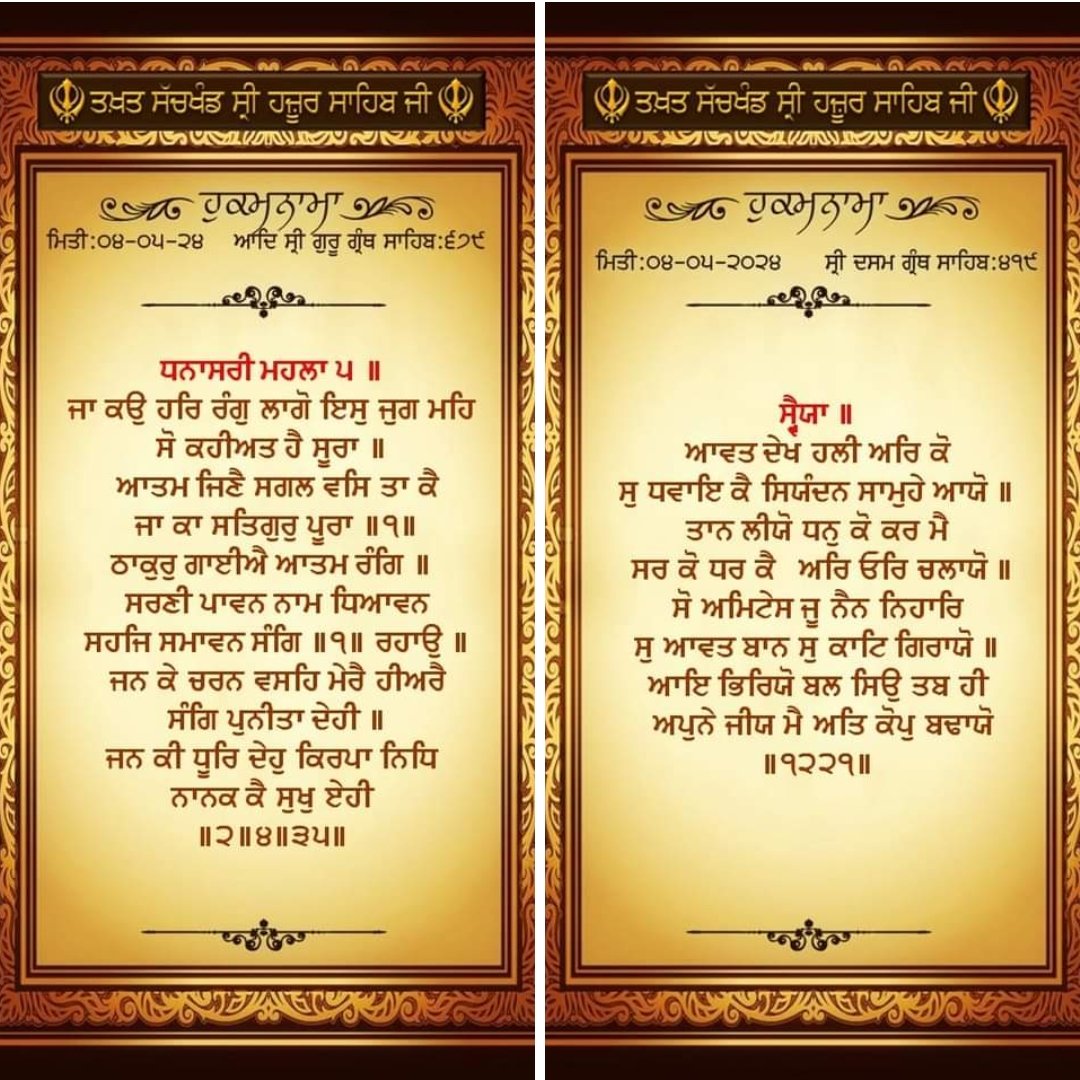 ਤਖ਼ਤ ਸੱਚਖੰਡ ਸ੍ਰੀ ਹਜ਼ੂਰ ਸਾਹਿਬ ਜੀ
ਹੁਕਮਨਾਮਾ
ਮਿਤੀ:੦੪-੦੫-੨੪ ਆਦਿ ਸ੍ਰੀ ਗੁਰੂ ਗ੍ਰੰਥ ਸਾਹਿਬ:੬੭੯
ਧਨਾਸਰੀ ਮਹਲਾ ੫ ॥
ਜਾ ਕਉ ਹਰਿ ਰੰਗੁ ਲਾਗੋ ਇਸੁ ਜੁਗ ਮਹਿ
ਸੋ ਕਹੀਅਤ ਹੈ ਸੂਰਾ ॥
ਆਤਮ ਜਿਣੈ ਸਗਲ ਵਸਿ ਤਾ ਕੈ
ਜਾ ਕਾ ਸਤਿਗੁਰੁ ਪੂਰਾ ॥੧॥
ਠਾਕੁਰੁ ਗਾਈਐ ਆਤਮ ਰੰਗਿ ॥
ਸਰਣੀ ਪਾਵਨ ਨਾਮ ਧਿਆਵਨ
ਸਹਜਿ ਸਮਾਵਨ ਸੰਗਿ ॥੧॥ ਰਹਾਉ ॥
ਜਨ ਕੇ ਚਰਨ ਵਸਹਿ ਮੇਰੈ ਹੀਅਰੈ
ਸੰਗਿ ਪੁਨੀਤਾ ਦੇਹੀ ॥
ਜਨ ਕੀ ਧੂਰਿ ਦੇਹੁ ਕਿਰਪਾ ਨਿਧਿ
ਨਾਨਕ ਕੈ ਸੁਖੁ ਏਹੀ
॥੨॥੪॥੩੫॥
ਤਖ਼ਤ ਸੱਚਖੰਡ ਸ੍ਰੀ ਹਜ਼ੂਰ ਸਾਹਿਬ ਜੀ
ਹੁਕਮਨਾਮਾ
ਮਿਤੀ:੦੪-੦੫-੨੦੨੪ ਸ੍ਰੀ ਦਸਮ ਗ੍ਰੰਥ ਸਾਹਿਬ:੪੧੯
ਸ੍ਵੈਯਾ ॥
ਆਵਤ ਦੇਖ ਹਲੀ ਅਰਿ ਕੋ
ਸੁ ਧਵਾਇ ਕੈ ਸਿਯੰਦਨ ਸਾਮੁਹੇ ਆਯੋ ॥
ਤਾਨ ਲੀਯੋ ਧਨੁ ਕੋ ਕਰ ਮੈ
ਸਰ ਕੋ ਧਰ ਕੈ ਅਰਿ ਓਰਿ ਚਲਾਯੋ ॥
ਸੋ ਅਮਿਟੇਸ ਜੂ ਨੈਨ ਨਿਹਾਰਿ
ਸੁ ਆਵਤ ਬਾਨ ਸੁ ਕਾਟਿ ਗਿਰਾਯੋ ॥
ਆਇ ਭਿਰਿਯੋ ਬਲ ਸਿਉ ਤਬ ਹੀ
ਅਪੁਨੇ ਜੀਯ ਮੈ ਅਤਿ ਕੋਪੁ ਬਢਾਯੋ
॥੧੨੨੧॥